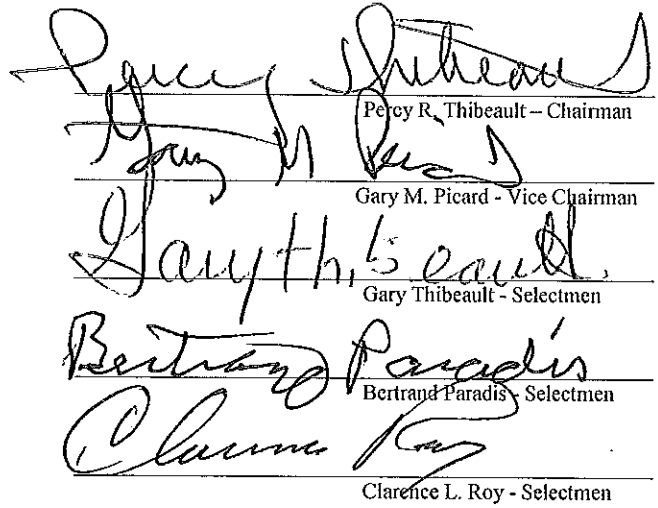 Percy Thibeault
Percy R. Thibeault – Chairman
Gary M Picard
Gary M. Picard - Vice Chairman
Gary Thibeault
Gary Thibeault - Selectmen
Bertrand Paradis
Bertrand Paradis - Selectmen
Clarence Roy
Clarence L. Roy - Selectmen